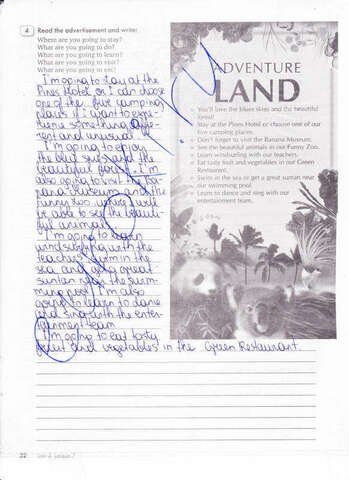 4 Read the advertisement and write:
Where are you going to stay?
What are you going to do?
What are you going to learn?
What are you going to visit?
What are you going to eat?
I'm going to stay at the
Pines Hotel or I can choose
one of the five camping
places if I want to expe-
rience something diffe-
rent and unusual.
I'm going to enjoy
the blue skies and the
beautiful forest. I'm
also going to visit the Ba-
nana museum and the
Funny Zoo where I will
be able to see the beauti-
ful animals.
I'm going to learn
windsurfing with the
teachers, swim in the
sea and get a great
suntan near the swim-
ming pool. I'm also
going to learn to dance
and sing with the enter-
tainment team.
I'm going to eat tasty
fruit and vegetables in the Green Restaurant.
ADVENTURE
LAND
You'll love the blue skies and the beautiful
forest!
Stay at the Pines Hotel or choose one of our
five camping places.
Don't forget to visit the Banana Museum.
See the beautiful animals in our Funny Zoo.
Learn windsurfing with our teachers.
Eat tasty fruit and vegetables in our Green
Restaurant.
Swim in the sea or get a great suntan near
our swimming pool.
Learn to dance and sing with our
entertainment team.
.ru
22